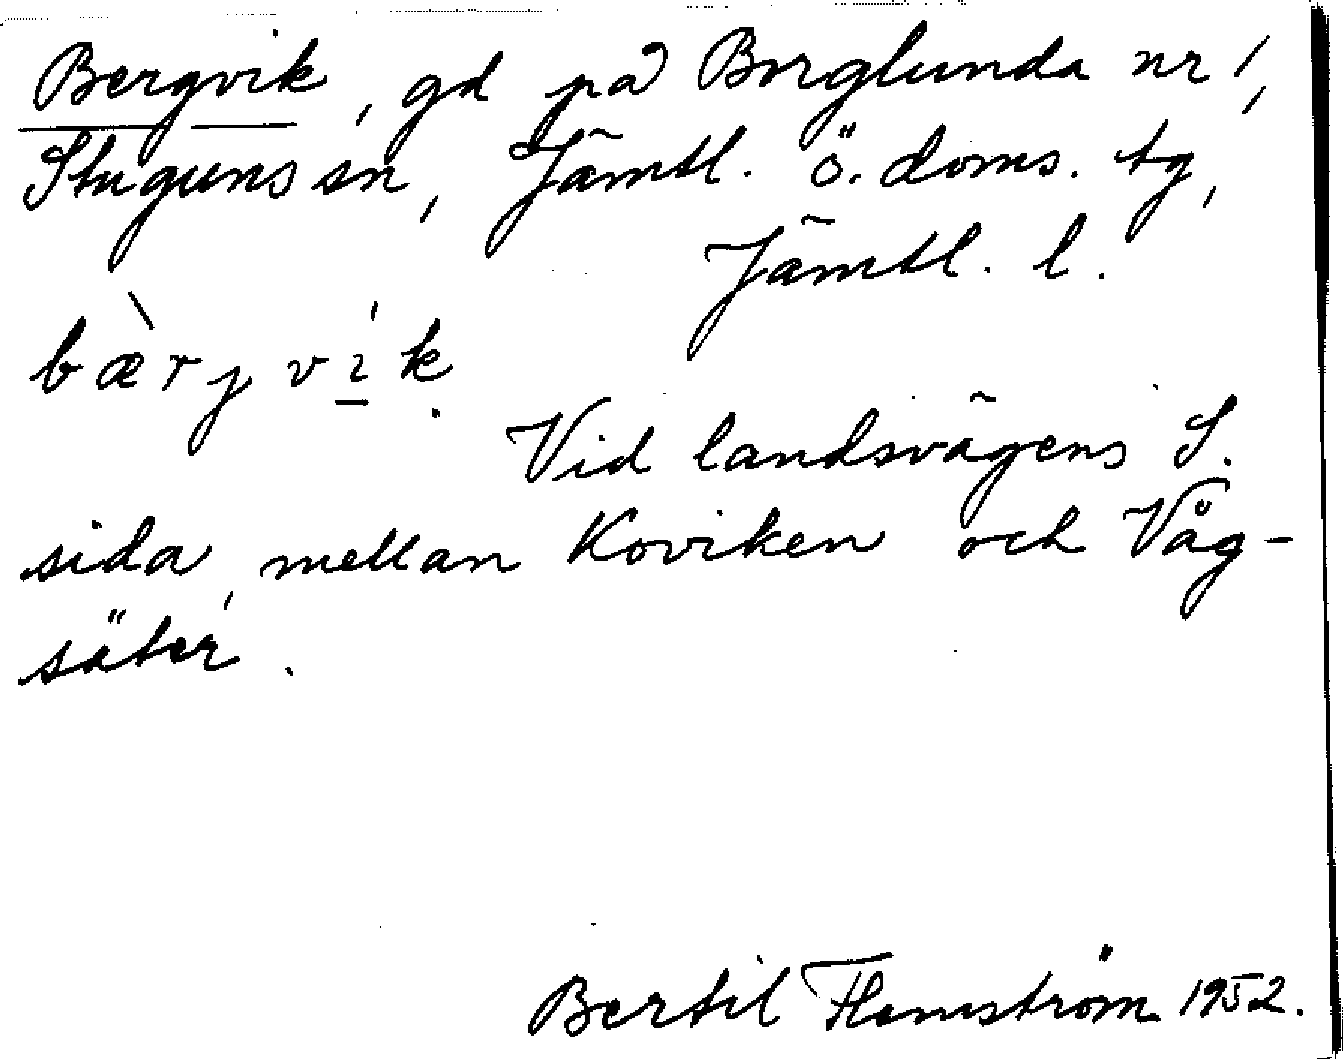 Bergvik, gd på Borglunda nr 1,
Stuguns sn, Jämtl. ö. doms. tg,
Jämtl. l.
bæ̀rjvík.
Vid landsvägens S.
sida, mellan Koviken och Våg-
säter.
Bertil Flemström 1952.